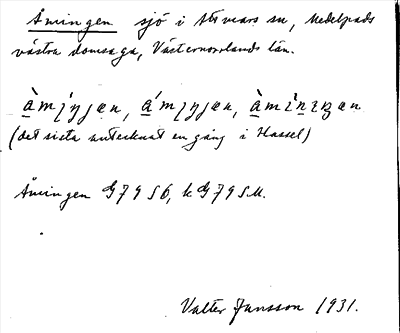 Åmingen sjö i Attmars sn, Medelpads
västra domsaga, Västernorrlands län.
(det sista antecknat en gång i Hassel)
Åmingen G 79 S6, k G 79 SM.
Valter Jansson 1931.